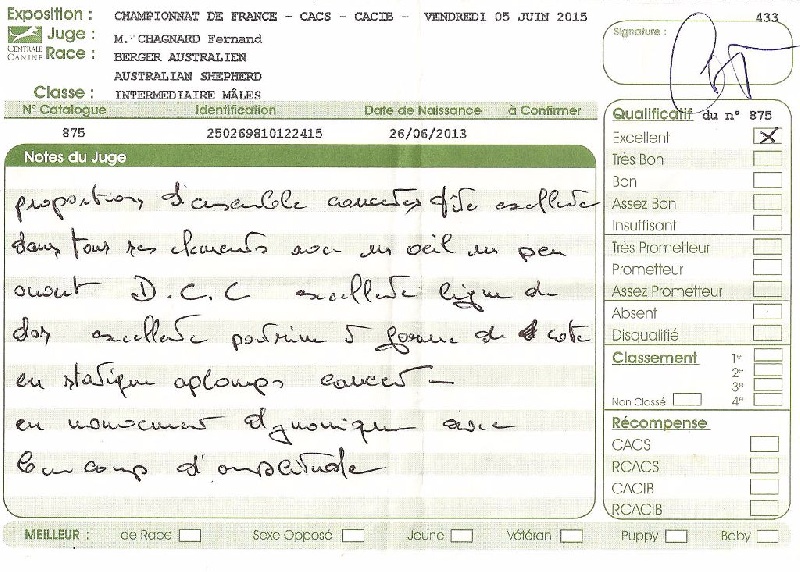 Exposition : CHAMPIONNAT DE FRANCE - CACS - CACIB - VENDREDI 05 JUIN 2015
433
Juge : M. CHAGNARD Fernand
Signature :
CENTRALE CANINE
Race : BERGER AUSTRALIEN
AUSTRALIAN SHEPHERD
Classe : INTERMEDIAIRE MÂLES
N° Catalogue Identification Date de Naissance à Confirmer
875 250269810122415 26/06/2013
Notes du Juge
proportions d'ensemble correctes tête excellente
dans tous ses elements avec un oeil un peu
ouvert D.C.C excellente ligne de
dos excellente poitrine forme de cote
en statique aplombs correct -
en mouvement dynamique avec
beaucoup d'amplitude
Qualificatif du n° 875
Excellent X
Très Bon
Bon
Assez Bon
Insuffisant
Très Prometteur
Prometteur
Assez Prometteur
Absent
Disqualifié
Classement 1er
2e
3e
Non Classé 4e
Récompense
CACS
RCACS
CACIB
RCACIB
MEILLEUR : de Race Sexe Opposé Jeune Vétéran Puppy Baby